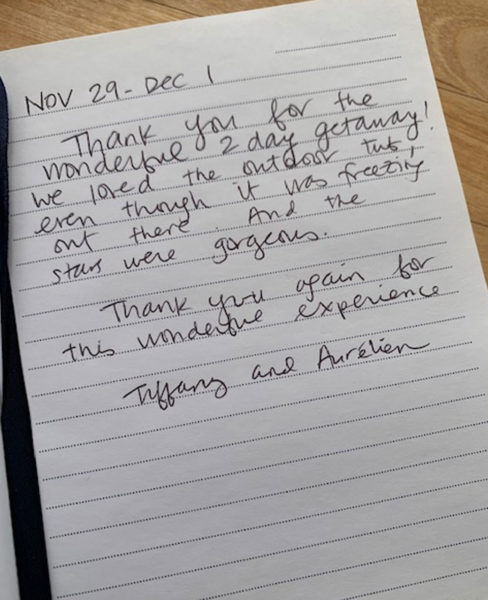 NOV 29 - Dec 1
Thank you for the
wonderful 2 day getaway!
we loved the outdoor tub,
even though it was freezing
out there. And the
stars were gorgeous.
Thank you again for
this wonderful experience
Tiffany and Aurélien